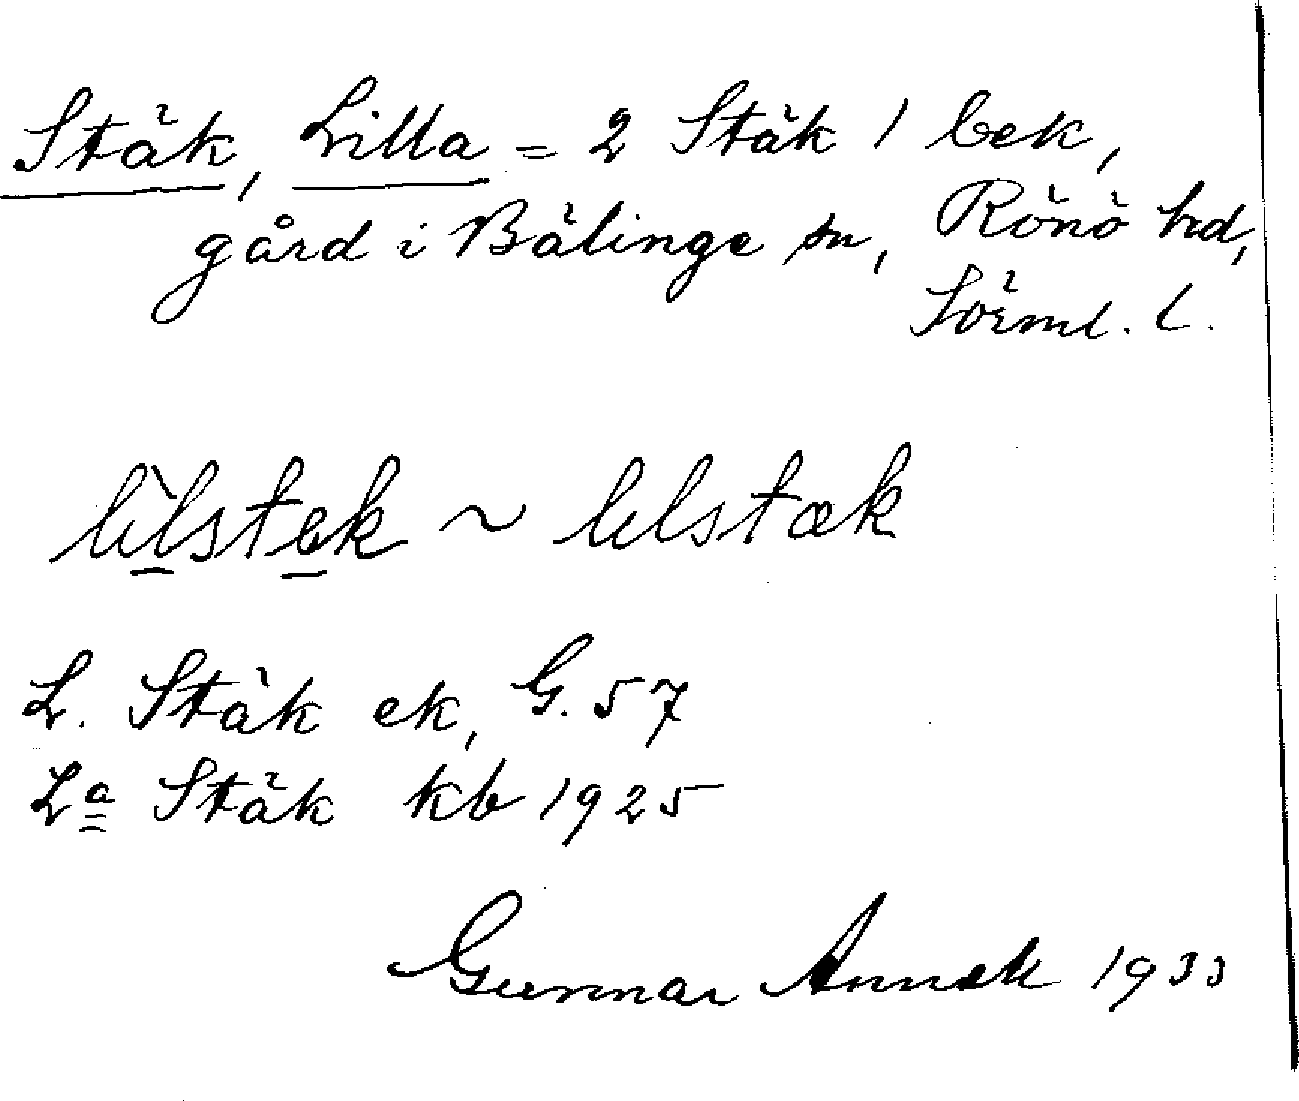 Stäk, Lilla = 2 Stäk 1 bek,
gård i Bälinge sn, Rönö hd,
Sörml. l.
lilstek ~ lilstæk
L. Stäk ek, G. 57
La Stäk kb 1925
Gunnar 1933